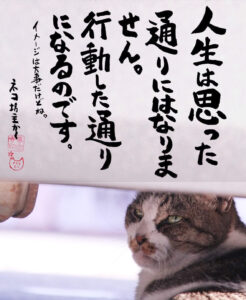 人生は思った
通りにはなりま
せん。
行動した通り
になるのです。
イメージは大事だけどね。
ネコ坊主かく